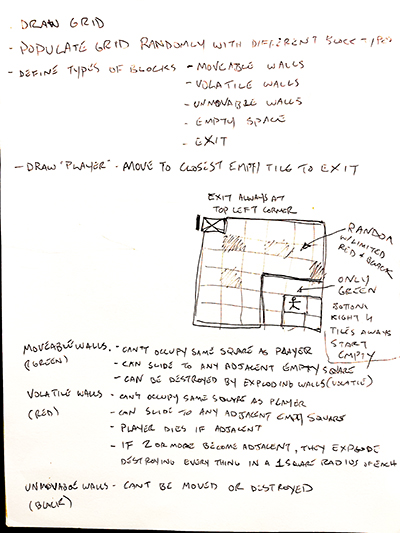 - DRAW GRID
- POPULATE GRID RANDOMLY WITH DIFFERENT BLOCK
- DEFINE TYPES OF BLOCKS - MOVEABLE WALLS
- VOLATILE WALLS
- UNMOVABLE WALLS
- EMPTY SPACE
- EXIT
- DRAW "PLAYER" - MOVE TO CLOSEST EMPTY TILE TO EXIT
EXIT ALWAYS AT
TOP LEFT CORNER
RANDOM
W/LIMITED
RED & BLACK
ONLY
GREEN
BOTTOM
RIGHT 4
TILES ALWAYS
START
EMPTY
MOVEABLE WALLS - CAN'T OCCUPY SAME SQUARE AS PLAYER
(GREEN) - CAN SLIDE TO ANY ADJACENT EMPTY SQUARE
- CAN BE DESTROYED BY EXPLODING WALLS (VOLATILE)
VOLATILE WALLS - CAN'T OCCUPY SAME SQUARE AS PLAYER
(RED) - CAN SLIDE TO ANY ADJACENT EMPTY SQUARE
- PLAYER DIES IF ADJACENT
- IF 2 OR MORE BECOME ADJACENT, THEY EXPLODE
DESTROYING EVERYTHING IN A 1 SQUARE RADIUS OF EACH
UNMOVABLE WALLS - CANT BE MOVED OR DESTROYED
(BLACK)